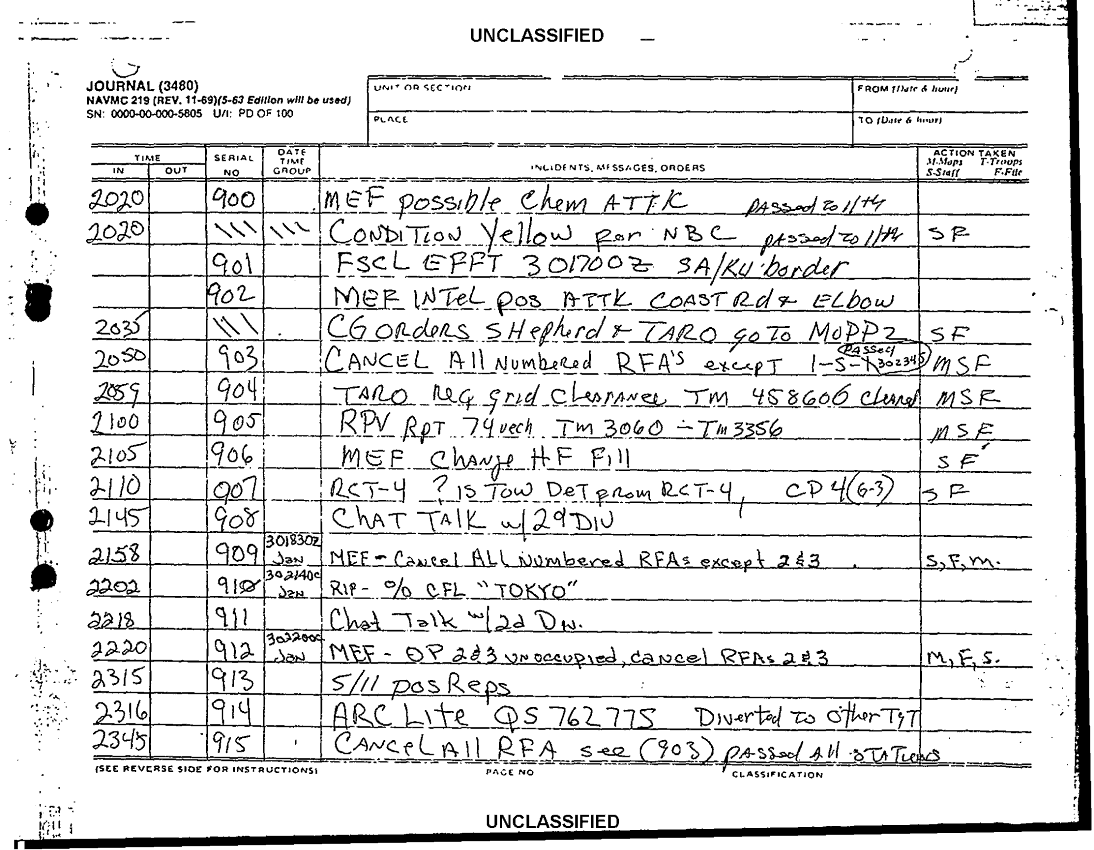 UNCLASSIFIED
JOURNAL (3480)
NAVMC 219 (REV. 11-69)(5-63 Edition will be used)
SN: 0000-00-000-5805 U/I: PD OF 100
UNIT OR SECTION
FROM (Date & hour)
PLACE
TO (Date & hour)
TIME
IN OUT
SERIAL NO
DATE TIME GROUP
INCIDENTS, MESSAGES, ORDERS
ACTION TAKEN
M-Maps T-Troops
S-Staff F-File
2020 900 MEF possible Chem ATTK passed to 11th
2020 \\\ \\\ CONDITION Yellow for NBC passed to 11th SF
901 FSCL EFFT 301700Z SA/KU border
902 MEF INTel pos ATTK COAST Rd & ELbow
2035 \\\ CG ORDERS SHepherd & TARO go TO MOPP2 SF
2050 903 CANCEL All Numbered RFA's except 1-S-1 passed 302345 MSF
2059 904 TARO Req grid Clearance TM 458606 cleared MSF
2100 905 RPV Rpt 74 vech Tm 3060 - Tm 3356 MSF
2105 906 MEF Change HF Fill SF
2110 007 RCT-4 ? is Tow Det from RCT-4, CP4 (G-3) SF
2145 908 ChAT TALK w/ 29 DIV
2158 909 301830Z Jan MEF - Cancel ALL Numbered RFAs except 2&3 . S,F,M.
2202 910 302140C Jan RIP - % CFL "TOKYO"
2218 911 Chat Talk w/ 2d Div.
2220 912 302200C Jan MEF - OP 2&3 unoccupied, cancel RFAs 2&3 M,F,S.
2315 913 5/11 pos Reps
2316 914 ARC Lite QS 762775 Diverted to other TgT
2345 915 CANCel All RFA see (903) passed All STATIONS
(SEE REVERSE SIDE FOR INSTRUCTIONS)
PAGE NO
CLASSIFICATION
UNCLASSIFIED